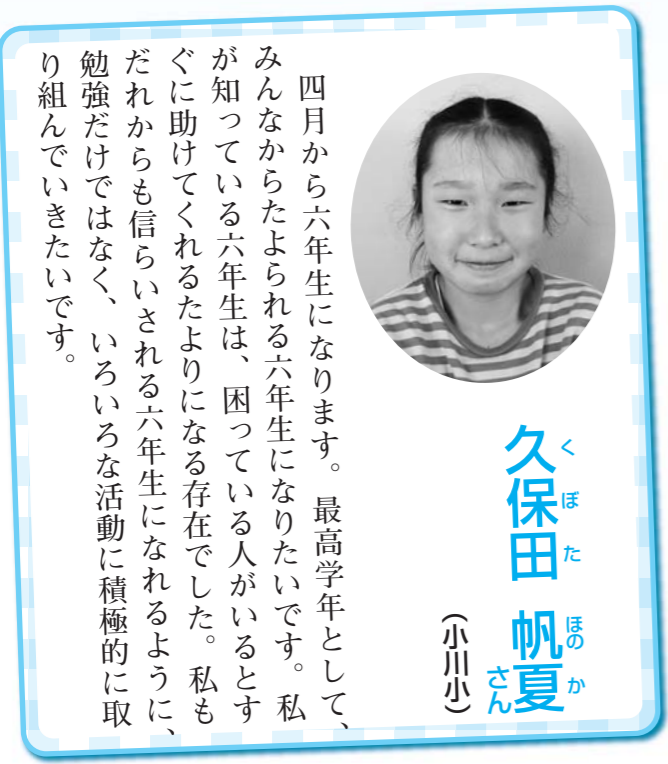 久保田 帆夏さん
くぼた ほのか
（小川小）
四月から六年生になります。最高学年として、
みんなからたよられる六年生になりたいです。私
が知っている六年生は、困っている人がいるとす
ぐに助けてくれるたよりになる存在でした。私も
だれからも信らいされる六年生になれるように、
勉強だけではなく、いろいろな活動に積極的に取
り組んでいきたいです。